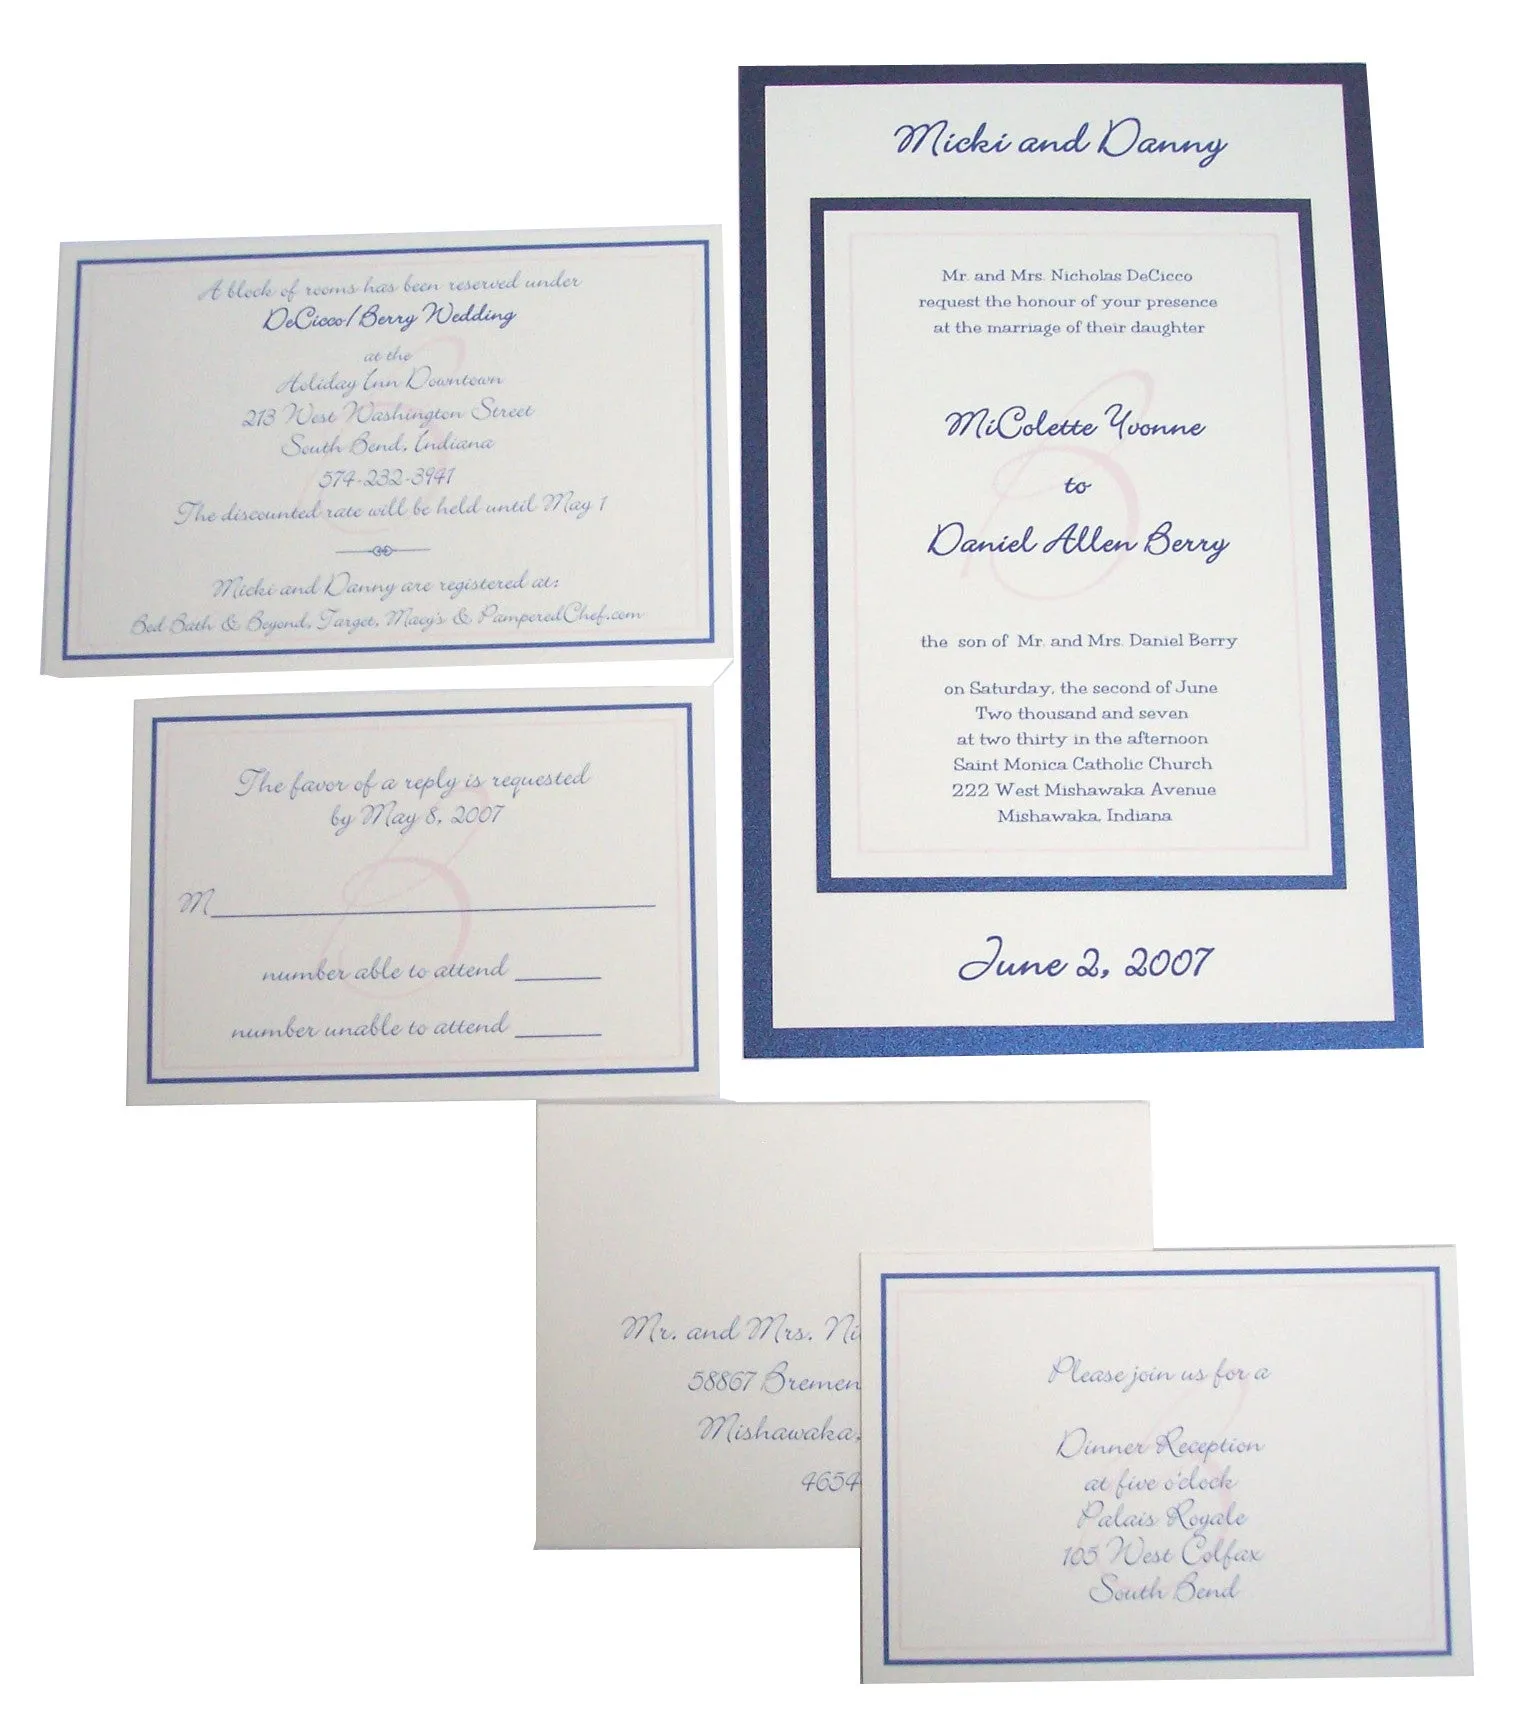 Micki and Danny
Mr. and Mrs. Nicholas DeCicco
request the honour of your presence
at the marriage of their daughter
MiColette Yvonne
to
Daniel Allen Berry
the son of Mr. and Mrs. Daniel Berry
on Saturday, the second of June
Two thousand and seven
at two thirty in the afternoon
Saint Monica Catholic Church
222 West Mishawaka Avenue
Mishawaka, Indiana
June 2, 2007
A block of rooms has been reserved under
DeCicco/Berry Wedding
at the
Holiday Inn Downtown
213 West Washington Street
South Bend, Indiana
574-232-3941
The discounted rate will be held until May 1
Micki and Danny are registered at:
Bed Bath & Beyond, Target, Macy's & PamperedChef.com
The favor of a reply is requested
by May 8, 2007
M
number able to attend
number unable to attend
Mr. and Mrs. Ni
58867 Bremen
Mishawaka,
4654
Please join us for a
Dinner Reception
at five o'clock
Palais Royale
105 West Colfax
South Bend
B
B
B
B